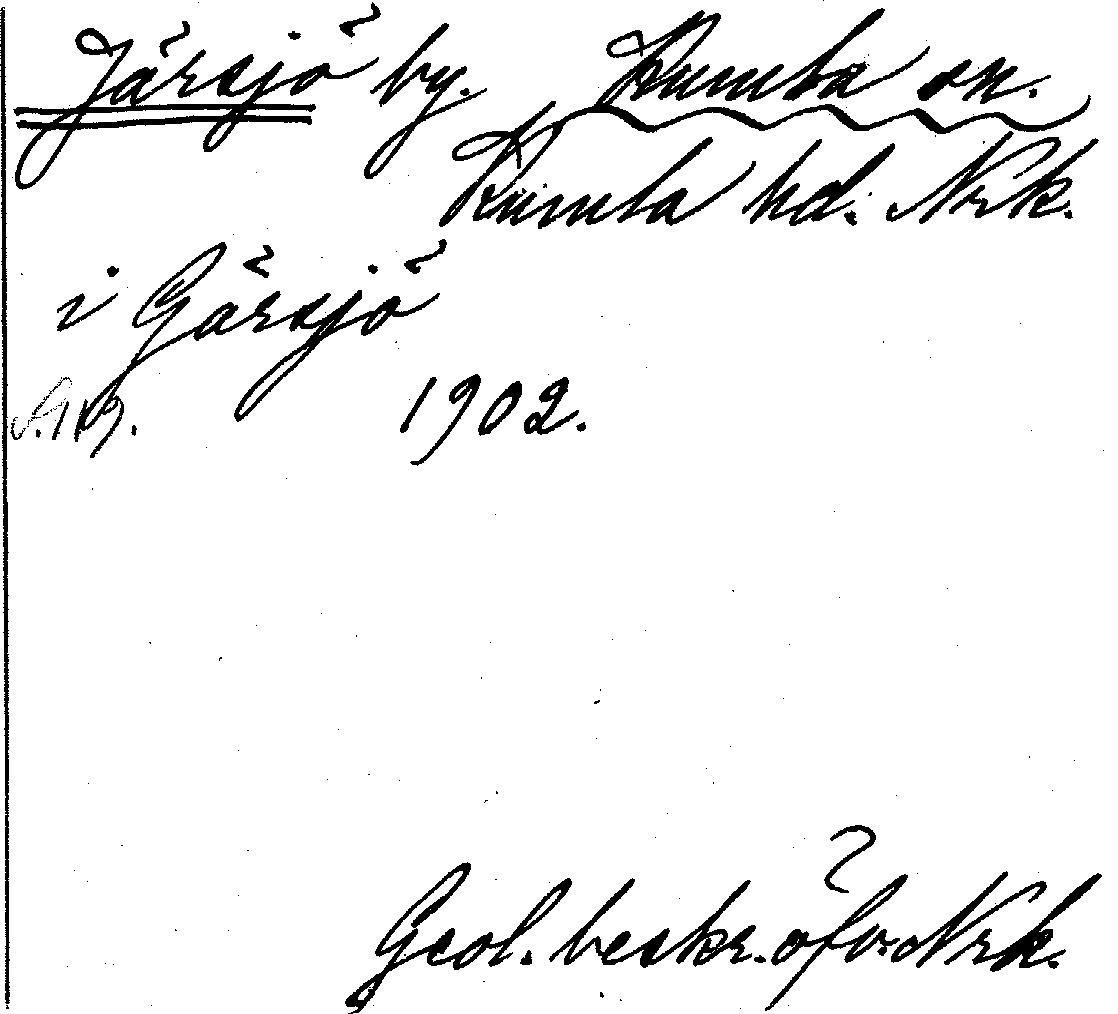 Järsjö by. Kumla sn.
Kumla hd. Nrk.
i Gärsjö
S. 119. 1902.
Geol. beskr. öfv. Nrk.